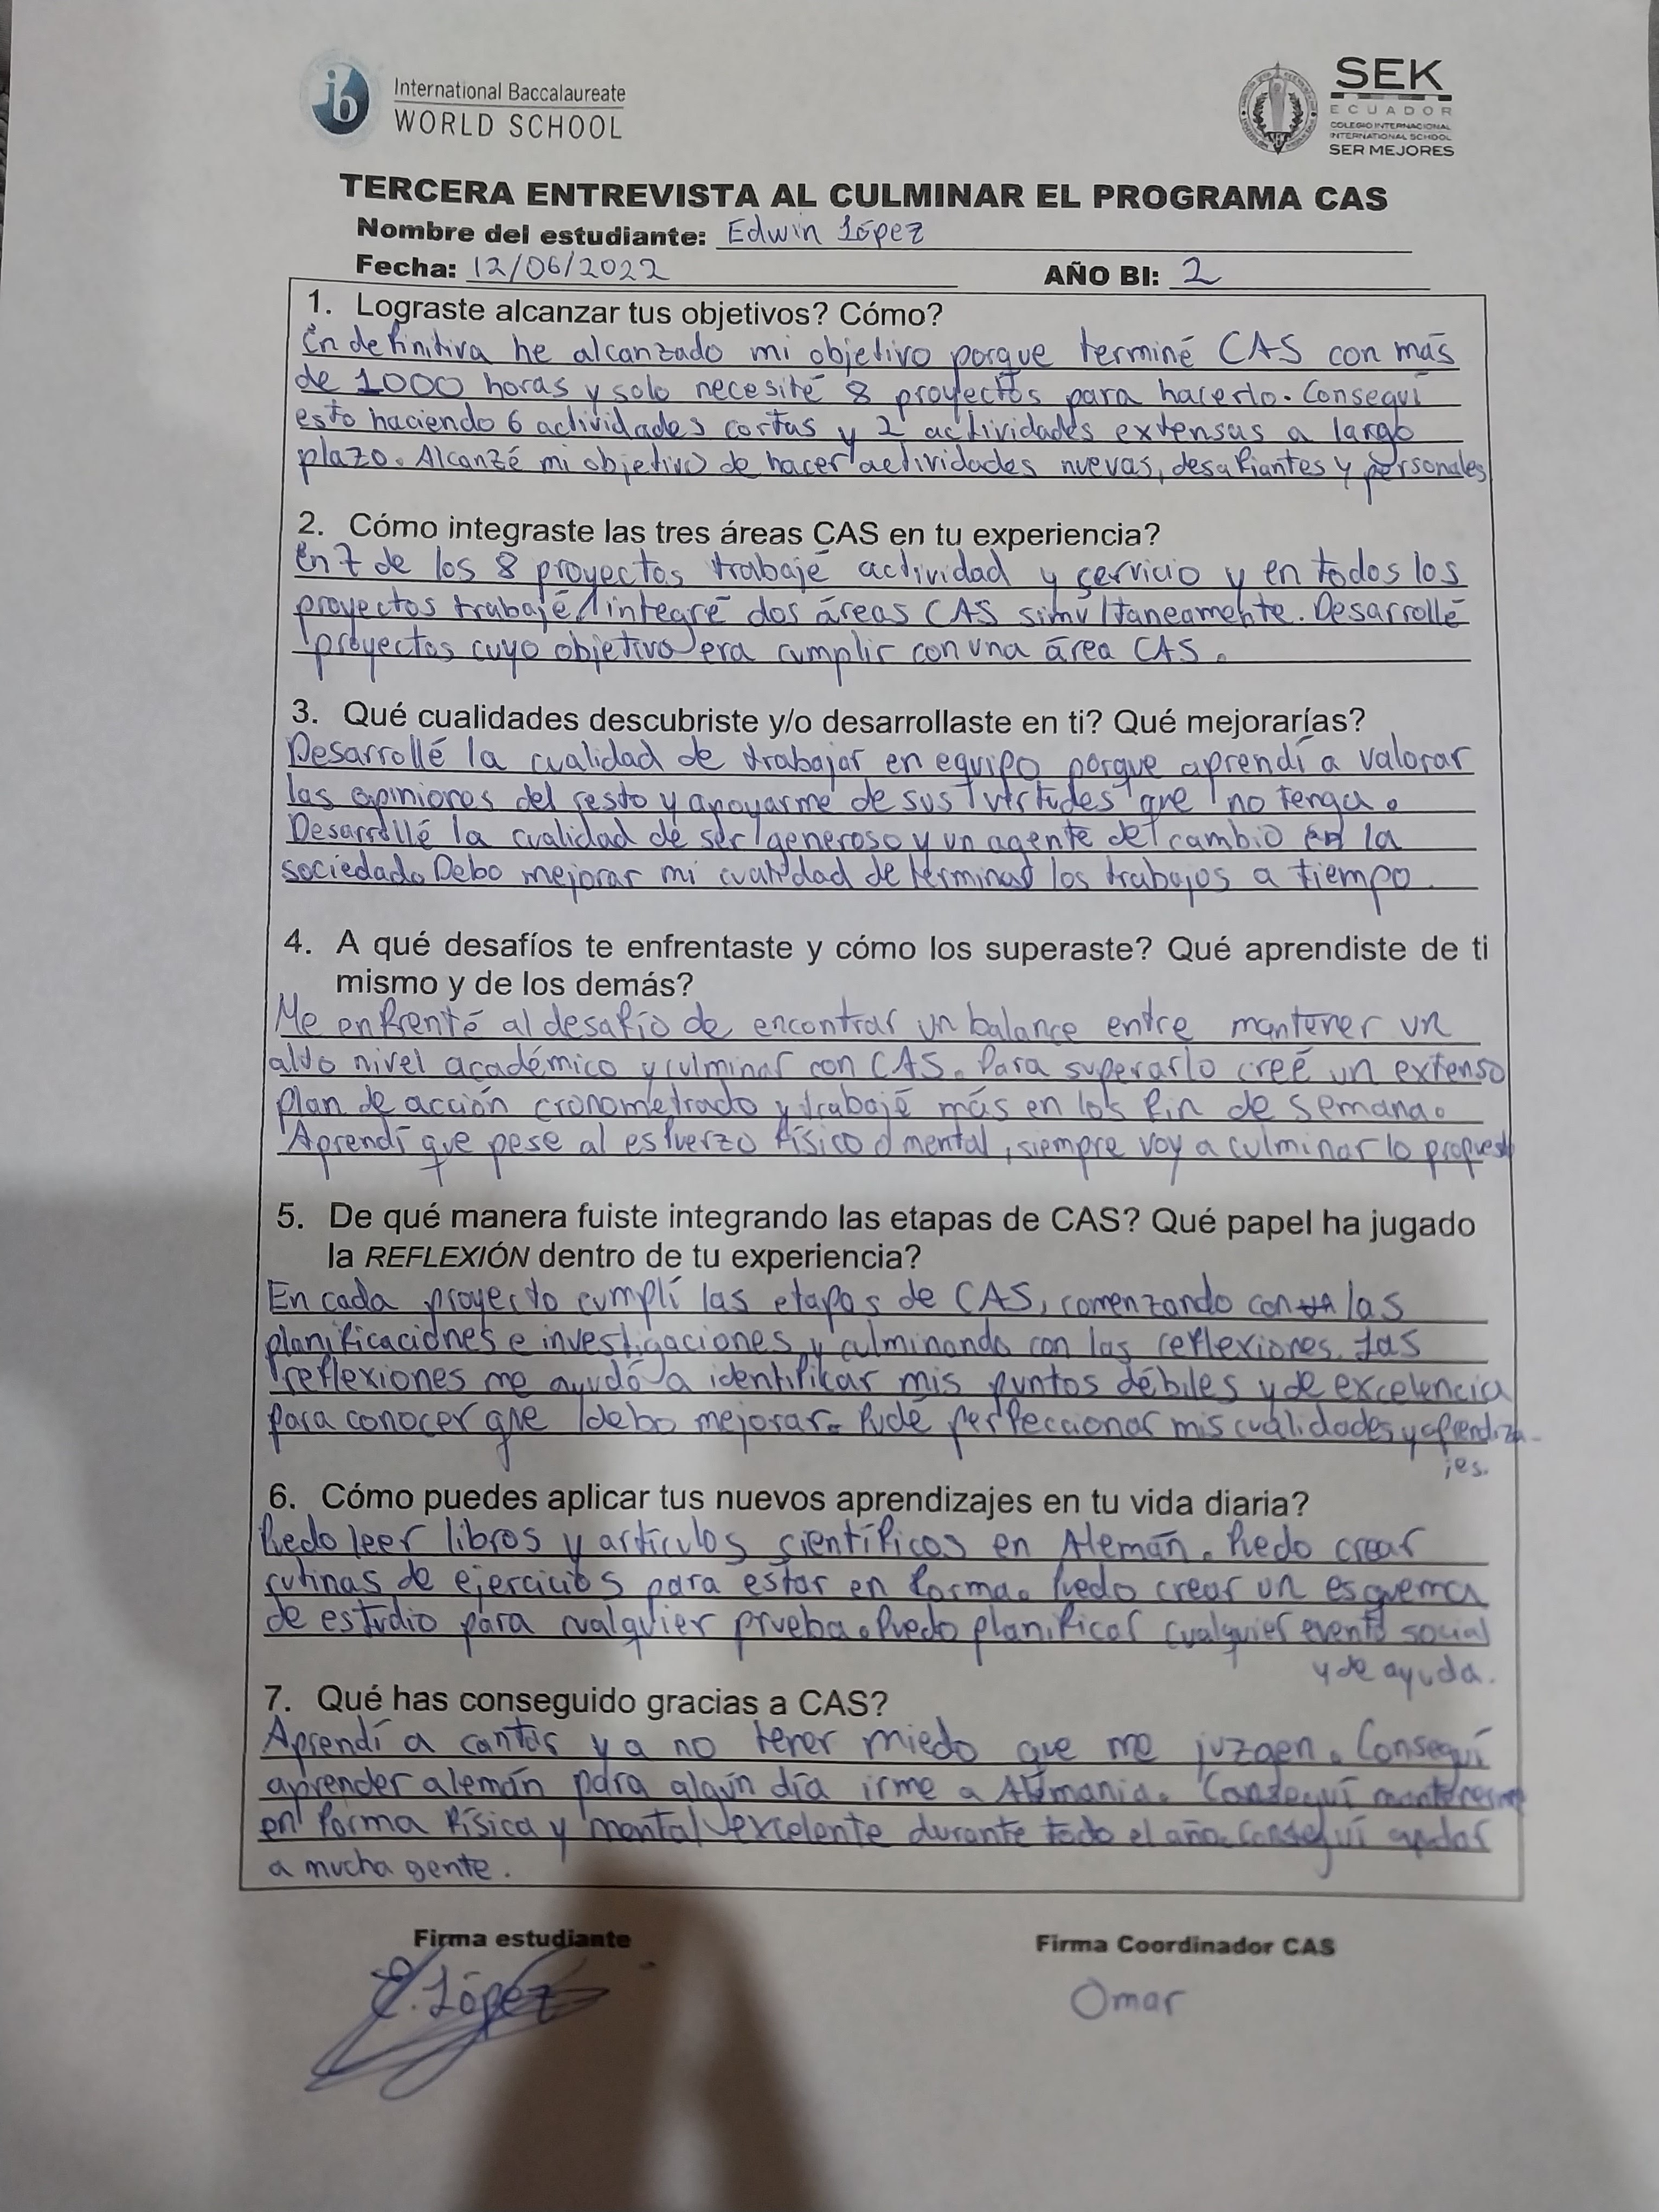 ib
International Baccalaureate
WORLD SCHOOL
SEK
ECUADOR
COLEGIO INTERNACIONAL
INTERNATIONAL SCHOOL
SER MEJORES
TERCERA ENTREVISTA AL CULMINAR EL PROGRAMA CAS
Nombre del estudiante: Edwin López
Fecha: 12/06/2022 AÑO BI: 2
1. Lograste alcanzar tus objetivos? Cómo?
En definitiva he alcanzado mi objetivo porque terminé CAS con más
de 1000 horas y solo necesité 8 proyectos para hacerlo. Conseguí
esto haciendo 6 actividades cortas y 2 actividades extensas a largo
plazo. Alcanzé mi objetivo de hacer actividades nuevas, desafiantes y personales
2. Cómo integraste las tres áreas CAS en tu experiencia?
En 7 de los 8 proyectos trabajé actividad y servicio y en todos los
proyectos trabajé/integré dos áreas CAS simultaneamente. Desarrollé
proyectos cuyo objetivo era cumplir con una área CAS.
3. Qué cualidades descubriste y/o desarrollaste en ti? Qué mejorarías?
Desarrollé la cualidad de trabajar en equipo porque aprendí a valorar
las opiniones del resto y apoyarme de sus virtudes que no tenga.
Desarrollé la cualidad de ser generoso y un agente del cambio en la
sociedad. Debo mejorar mi cualidad de terminar los trabajos a tiempo
4. A qué desafíos te enfrentaste y cómo los superaste? Qué aprendiste de ti
mismo y de los demás?
Me enfrenté al desafío de encontrar un balance entre mantener un
alto nivel académico y culminar con CAS. Para superarlo creé un extenso
plan de acción cronometrado y trabajé más en los fin de semana.
Aprendí que pese al esfuerzo físico o mental, siempre voy a culminar lo propuesto
5. De qué manera fuiste integrando las etapas de CAS? Qué papel ha jugado
la REFLEXIÓN dentro de tu experiencia?
En cada proyecto cumplí las etapas de CAS, comenzando con las
planificaciones e investigaciones y culminando con las reflexiones. Las
reflexiones me ayudó a identifikar mis puntos débiles y de excelencia
para conocer que debo mejorar. Pude perfeccionar mis cualidades y aprendiza-
jes.
6. Cómo puedes aplicar tus nuevos aprendizajes en tu vida diaria?
Puedo leer libros y artículos científicos en Alemán. Puedo crear
rutinas de ejercicios para estar en forma. Puedo crear un esquema
de estudio para cualquier prueba. Puedo planificar cualquier evento social
y de ayuda.
7. Qué has conseguido gracias a CAS?
Aprendí a cantar y a no tener miedo que me juzgen. Conseguí
aprender alemán para algún día irme a Alemania. Conseguí mantenerme
en forma física y mental excelente durante todo el año. Conseguí ayudar
a mucha gente.
Firma estudiante Firma Coordinador CAS
E. López Omar